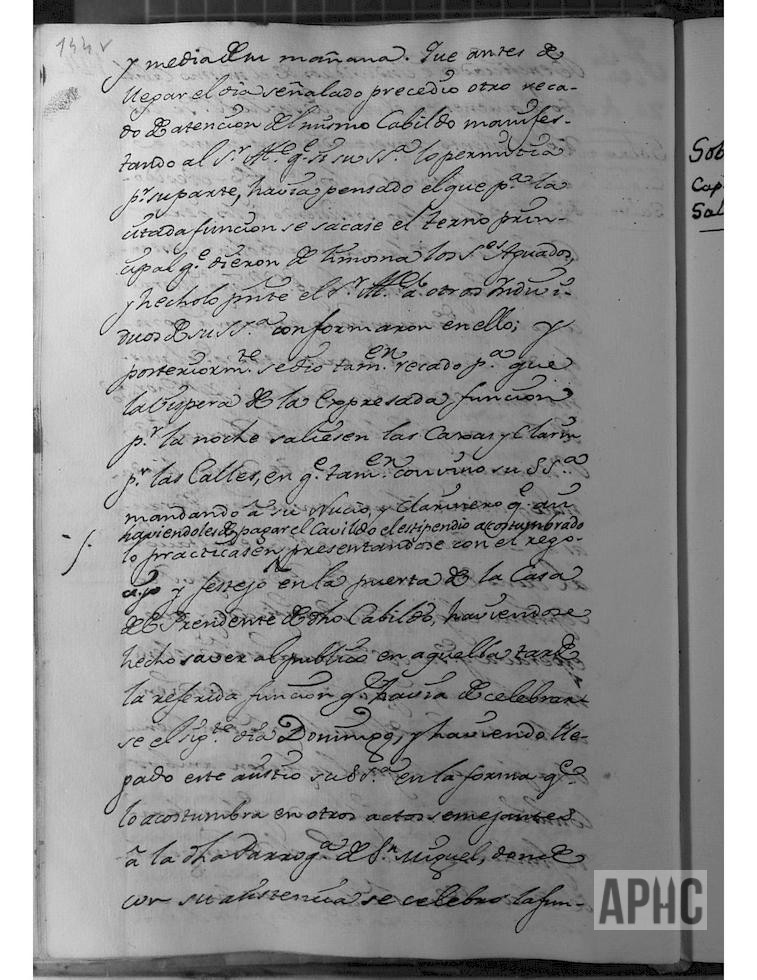 144 v
y media de su mañana. Que antes de
llegar el dia señalado precedio otro reca-
do de atencion del mismo Cabildo manifes-
tando al S.r M.e q.e si su S.a lo permitia
p.r su parte, havia pensado el que p.a la
citada funcion se sacase el terno prin-
cipal q.e dieron de limosna los S.es Aguados,
y hecholo pnte el S.r a otros Yndivi-
duos de su S.a conformaron en ello; y
posteriorm.te se dio tam.en recado p.a que
la Vispera de la Expresada funcion
p.r la noche saliesen las Caxas y Clarin
p.r las Calles, en q.e tam.en convino su S.a
mandando à su Nucio, y Clarinero q.e
haviendoles de pagar el Cavildo el estipendio acostumbrado
lo practicasen, presentandose con el rego-
y festejo en la puerta de la Casa
de Precidente de dho Cabildo, haviendose
hecho saver al publico en aquella tarde
la referida funcion q.e havia de celebrar-
se el sig.te dia Domingo, y haviendo lle-
gado este asistio su S.a en la forma q.e
lo acostumbra en otros actos semejantes
à la dha Parroq.a de S.n Miguel, donde
con su asistencia se celebro la fun-
Sob
Cap
Sal
APHC